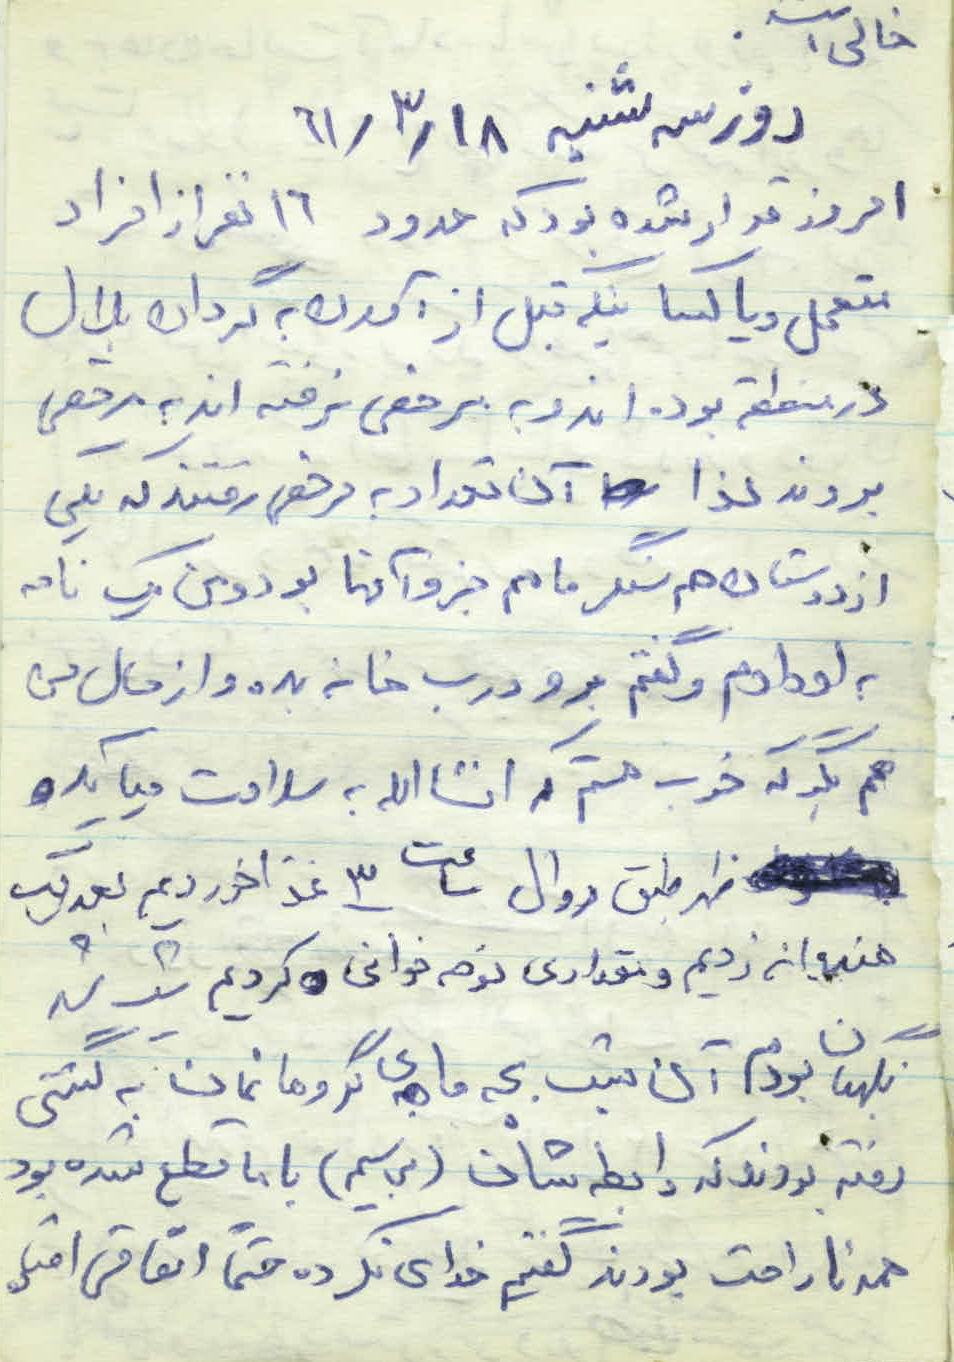 خالی است.
روز سه شنبه ۶۱/۳/۱۸
امروز قرار شده بود که حدود ۱۶ نفر از افراد
متعهل ویا کسا نیکه قبل از آمدن به گردان بلال
در منطقه بوده اند و به مرخصی نرفته اند به مرخصی
بروند لذا آن تعداد به مرخصی رفتند که یکی
از دوستان هم سنگر ما هم جزو آنها بود و من یک نامه
به او دادم و گفتم برو درب خانه بده و از حال من
هم بگو که خوب هستم که انشاالله به سلامت میاید
ظهر طبق روال ساعت ۳ غذا خوردیم بعد یک
هندوانه زدیم و مقداری نوحه خوانی کردیم شب
نگهبان بودم آن شب بچه های گروهانمان به گشتی
رفته بودند که رابطه شان (بی سیم) با ما قطع شده بود
همه ناراحت بودند گفتیم خدای نکرده حتماً اتفاقی